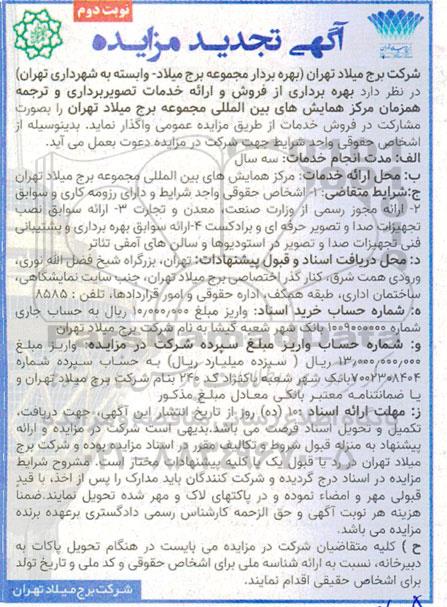 نوبت دوم
آگهی تجدید مزایده
شرکت برج میلاد تهران (بهره بردار مجموعه برج میلاد- وابسته به شهرداری تهران)
در نظر دارد بهره برداری از فروش و ارائه خدمات تصویربرداری و ترجمه
همزمان مرکز همایش های بین المللی مجموعه برج میلاد تهران را بصورت
مشارکت در فروش خدمات از طریق مزایده عمومی واگذار نماید. بدینوسیله از
اشخاص حقوقی واجد شرایط جهت شرکت در مزایده دعوت بعمل می آید.
الف: مدت انجام خدمات: سه سال
ب: محل ارائه خدمات: مرکز همایش های بین المللی مجموعه برج میلاد تهران
ج:شرایط متقاضی: ۱- اشخاص حقوقی واجد شرایط و دارای رزومه کاری و سوابق
۲- ارائه مجوز رسمی از وزارت صنعت، معدن و تجارت ۳- ارائه سوابق نصب
تجهیزات صدا و تصویر حرفه ای و برادکست ۴-ارائه سوابق بهره برداری و پشتیبانی
فنی تجهیزات صدا و تصویر در استودیوها و سالن های آمفی تئاتر
د: محل دریافت اسناد و قبول پیشنهادات: تهران، بزرگراه شیخ فضل الله نوری،
ورودی همت شرق، کنار گذر اختصاصی برج میلاد تهران، جنب سایت نمایشگاهی،
ساختمان اداری، طبقه همکف، اداره حقوقی و امور قراردادها، تلفن : ۸۵۸۵
ه: شماره حساب خرید اسناد: واریز مبلغ ۱۰٫۰۰۰٫۰۰۰ ریال به حساب جاری
شماره بانک شهر شعبه گیشا به نام شرکت برج میلاد تهران
و: شماره حساب واریز مبلغ سپرده شرکت در مزایده: واریز مبلغ
۱۳٫۰۰۰٫۰۰۰٫۰۰۰ ریال ( سیزده میلیارد ریال) به حساب سپرده شماره
۷۰۰۲۳۰۸۴۰۴ بانک شهر شعبه پاکنژاد کد ۲۴۰ بنام شرکت برج میلاد تهران و
یا ضمانتنامه معتبر بانکی معادل مبلغ مذکور
ز: مهلت ارائه اسناد :۱۰ (ده) روز از تاریخ انتشار این آگهی، جهت دریافت،
تکمیل و تحویل اسناد فرصت می باشد.بدیهی است شرکت در مزایده و ارائه
پیشنهاد به منزله قبول شروط و تکالیف مقرر در اسناد مزایده بوده و شرکت برج
میلاد تهران در رد یا قبول یک یا کلیه پیشنهادات مختار است. مشروح شرایط
مزایده در اسناد درج گردیده و شرکت کنندگان باید مدارک را پس از اخذ، با قید
قبولی مهر و امضاء نموده و در پاکتهای لاک و مهر شده تحویل نمایند.ضمنا
هزینه هر نوبت آگهی و حق الزحمه کارشناس رسمی دادگستری برعهده برنده
مزایده می باشد.
ح ) کلیه متقاضیان شرکت در مزایده می بایست در هنگام تحویل پاکات به
دبیرخانه، نسبت به ارائه شناسه ملی برای اشخاص حقوقی و کد ملی و تاریخ تولد
برای اشخاص حقیقی اقدام نمایند.
شرکت برج میلاد تهران